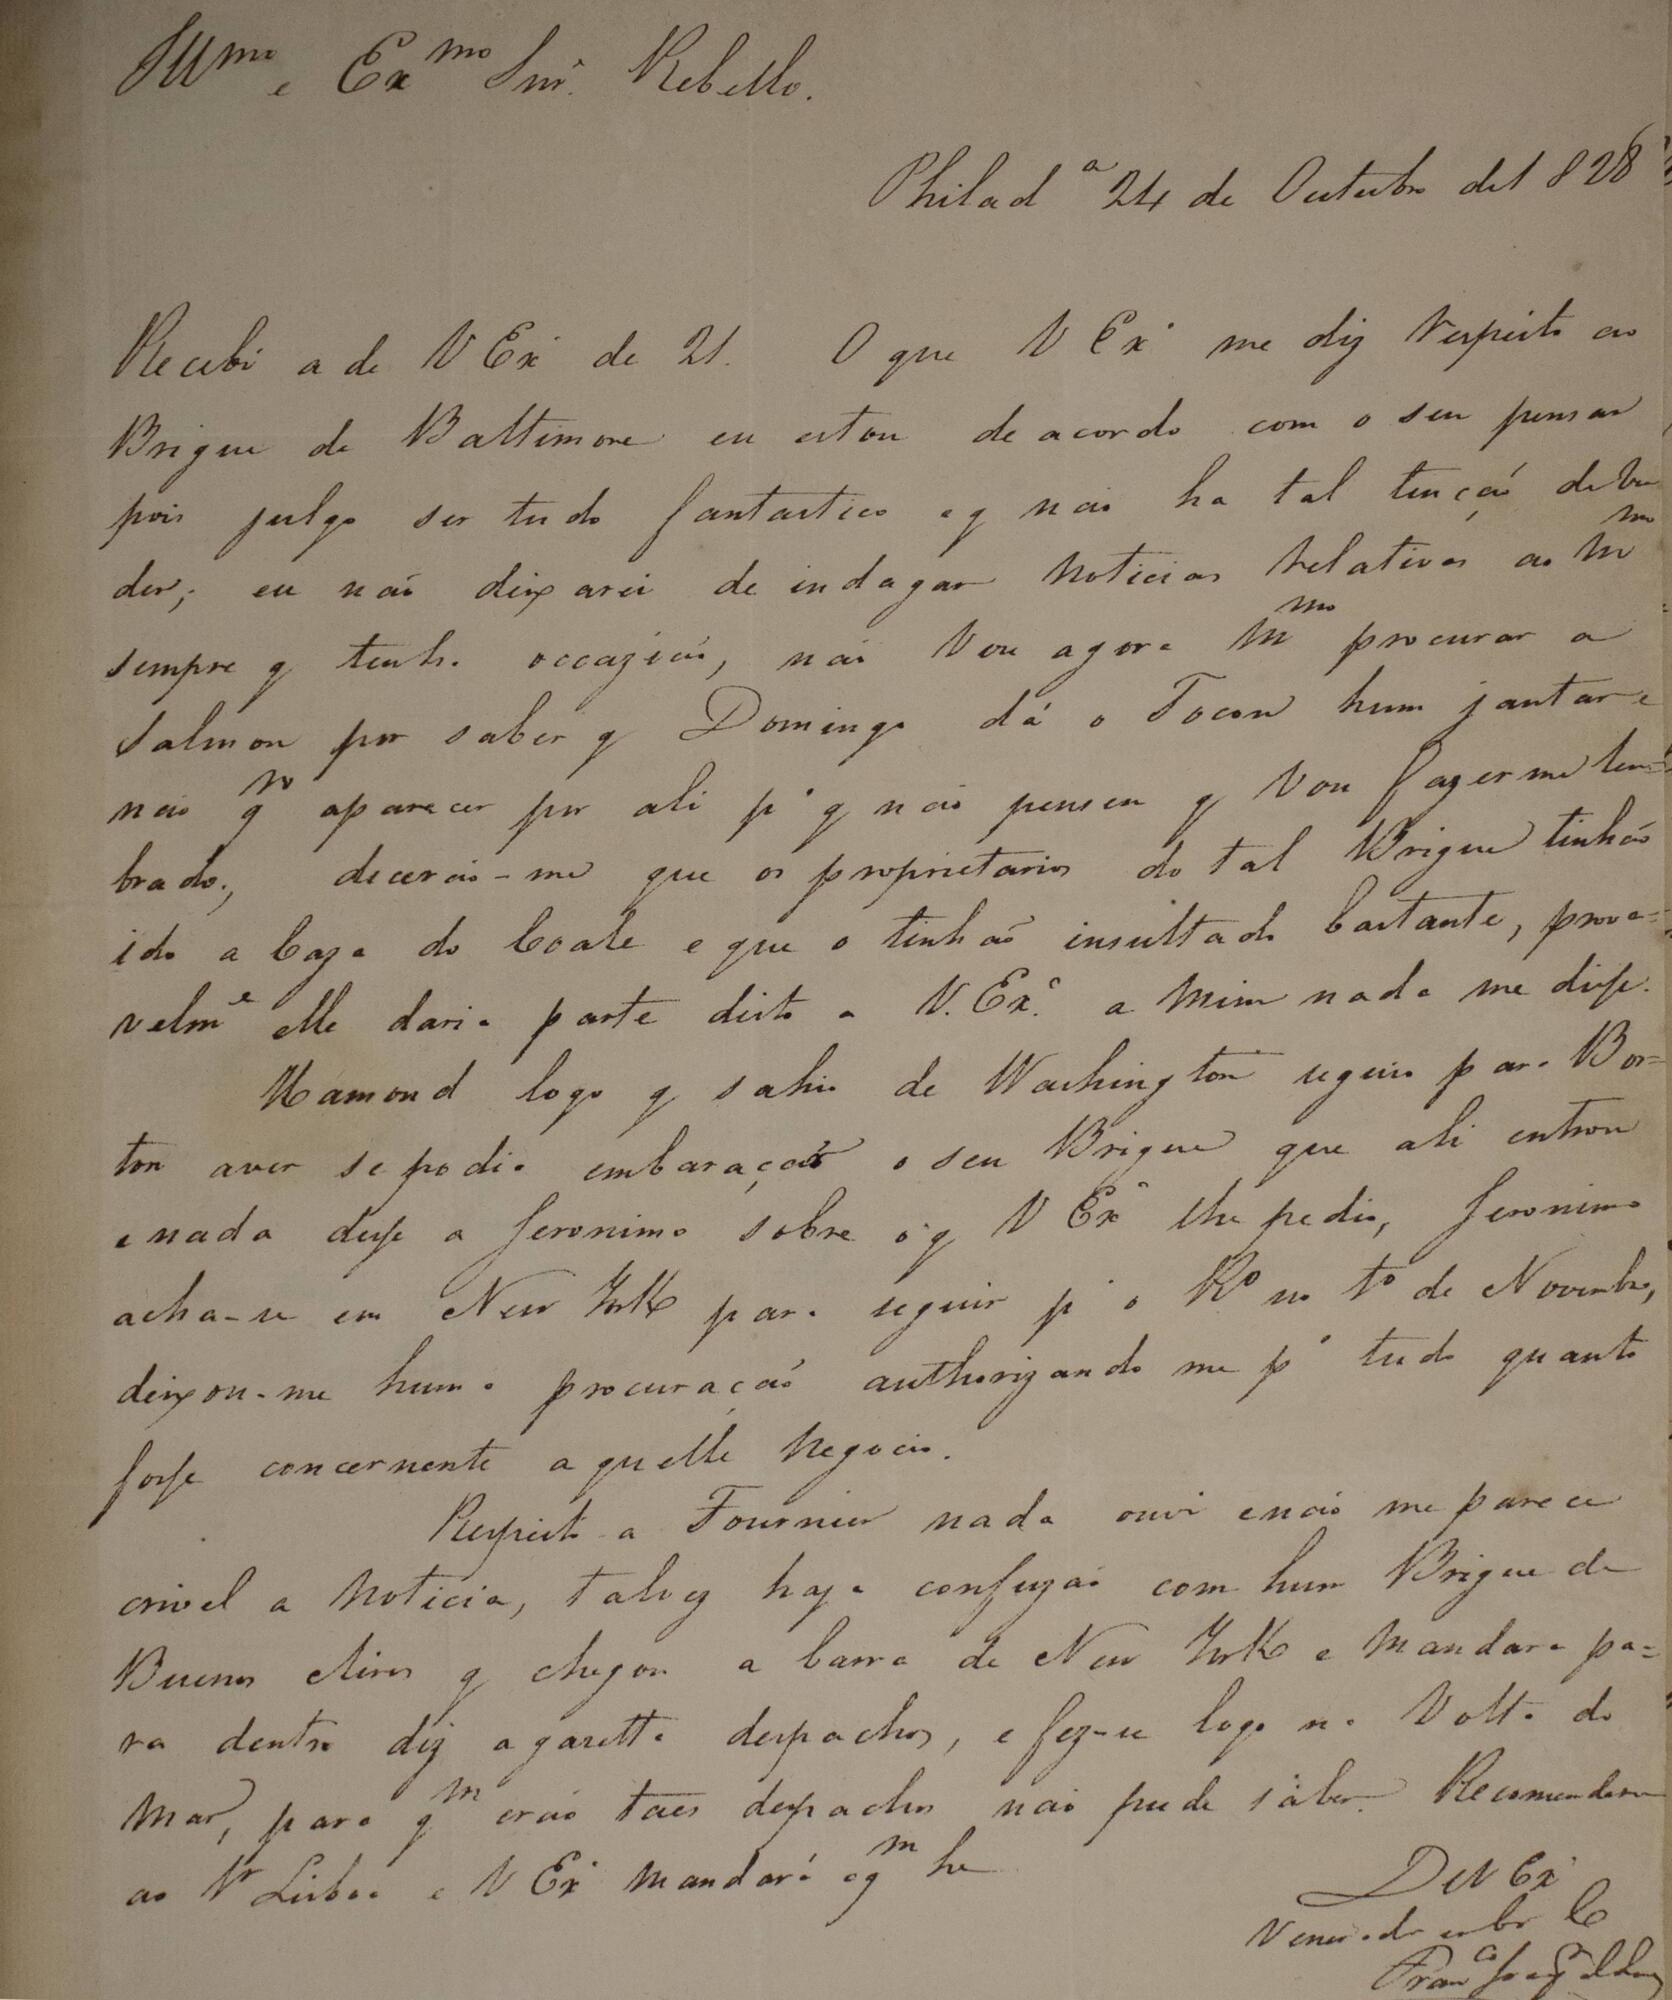 Illmo e Exmo Snr. Rebello.
Philada 24 de Outubro de 1828
Recebi a de V Exa de 21. O que V Exa me diz respeito ao
Brigue de Baltimore eu estou de acordo com o seu pensar
pois julgo ser tudo fantastico e q não ha tal tenção de ven
der; eu não dixarei de indagar noticias relativas ao mmo
sempre q tenha occazião, não vou agora mmo procurar a
Salmon por saber q Domingo dá o Tocon hum jantar e
não qro aparecer por ali pa q não pensem q vou fazer me lem=
brado; diceráo-me que os proprietarios do tal Brigue tinhão
ido a Caza do Coale e que o tinhão insultado bastante, prova=
velme elle daria parte disto a V. Exa. a mim nada me disse.
Hamond logo q sahio de Washington seguio para Bos=
ton aver se podia embaraçar o seu Brigue que ali entrou
e nada disse a Jeronimo sobre o q V Exa lhe pedio, Jeronimo
acha-se em New York para seguir pa o Ro no 1o de Novembro,
deixou-me huma procuração authorizando me pa tudo quanto
fosse concernente aquelle negocio.
Respeito a Fournier nada ouvi e não me parece
crivel a noticia, talvez haja confuzão com hum Brigue de
Buenos Aires q chegou a barra de New York e mandara pa=
ra dentro diz a gazetta despachos, e fez-se logo na volta do
mar, para qm erão taes despachos não pude saber. Recomendome
ao Sr Lisboa e V Exa mandará a qm he
De V Exa
Venerador e obr C
Franco